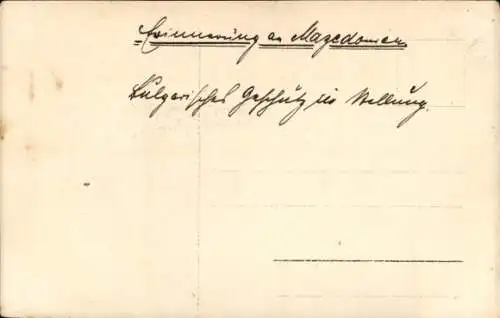 Erinnerung an Mazedonien
Bulgarisches Geschütz in Stellung.